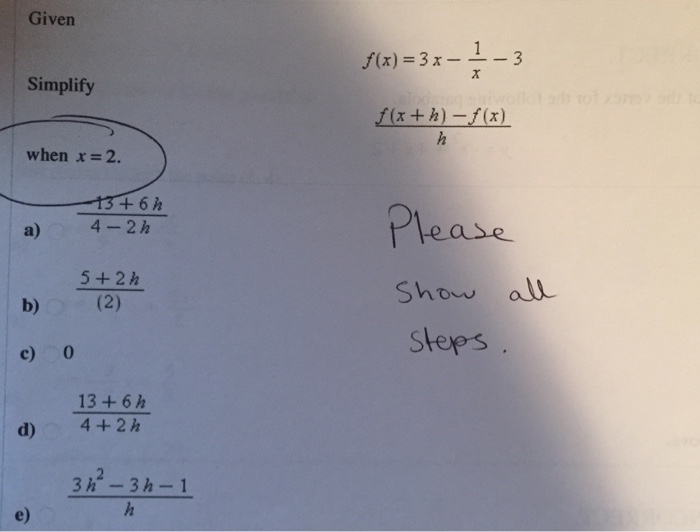 Given
f(x) = 3x - 1/x - 3
Simplify
f(x+h) - f(x) / h
when x = 2.
a) -13+6h / 4-2h
b) 5+2h / (2)
c) 0
d) 13+6h / 4+2h
e) 3h² - 3h - 1 / h
Please
show all
steps.